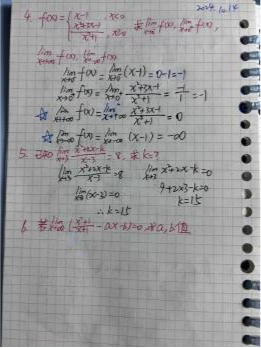 2024.10.14
4. f(x)={x-1, x≤0
x²+3x-1/x³+1, x>0 求lim x→0⁻ f(x), lim x→0⁺ f(x),
lim x→+∞ f(x), lim x→-∞ f(x)
lim x→0⁻ f(x)=lim x→0⁻ (x-1)=0-1=-1
lim x→0⁺ f(x)=lim x→0⁺ x²+3x-1/x³+1=-1/1=-1
☆ lim x→+∞ f(x)=lim x→+∞ x²+3x-1/x³+1=0
☆ lim x→-∞ f(x)=lim x→-∞ (x-1)=-∞
5. 已知lim x→3 x²+2x-k/x-3=8, 求k=?
lim x→3 x²+2x-k/x-3=8 lim x→3 x²+2x-k=0
lim x→3 (x-3)=0 9+2×3-k=0
∴k=15 k=15
6. 若lim x→∞ (x²+1/x+1-ax-b)=0, 求a,b值